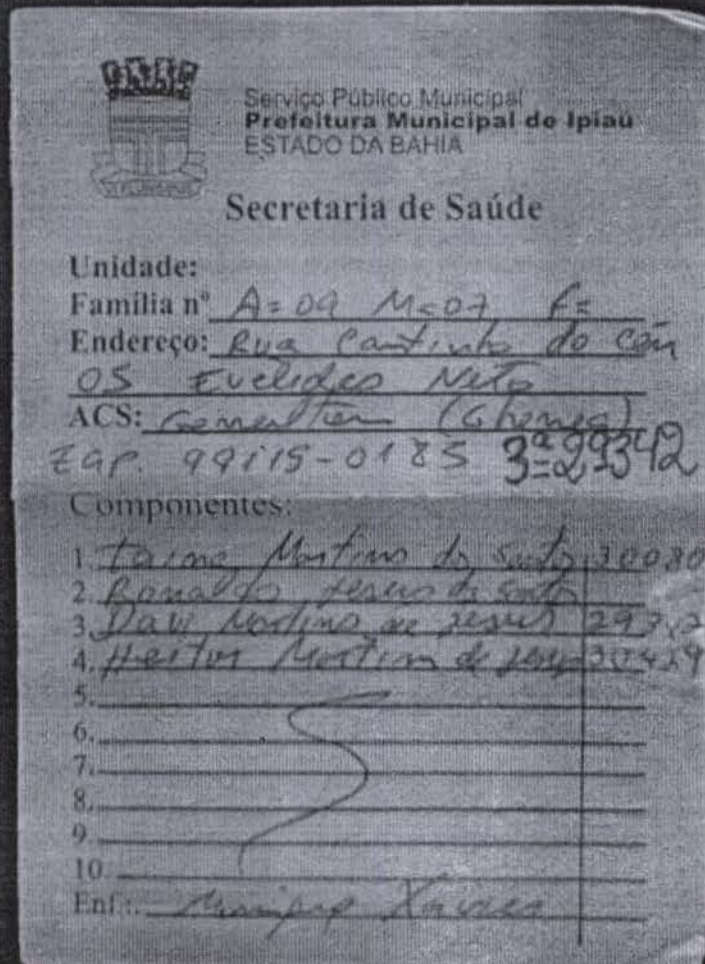 Serviço Público Municipal
Prefeitura Municipal de Ipiaú
ESTADO DA BAHIA
Secretaria de Saúde
Unidade:
Família nº A=09 M=07 F=
Endereço: Rua Cantinho do Céu
05 Euclides Neto
ACS:
Zap. 99115-0185 3ª=29342
Componentes:
1. Martins do Santo 30080
2. Ronaldo Jesus do Santo
3. Davi Martins de Jesus
4. Heitor Martins de Jesus 30429
5.
6.
7.
8.
9.
10.
Enf.: Xavier